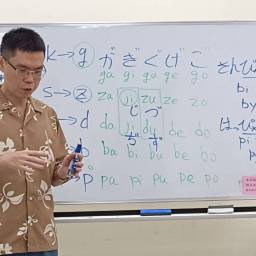 k→g がぎぐげご さんび
ga gi gu ge go bi
s→z za ji zu ze zo by
じづ はっぴ
→d da ji du de do pi
ぢず
b ba bi bu be bo
p pa pi pu pe po